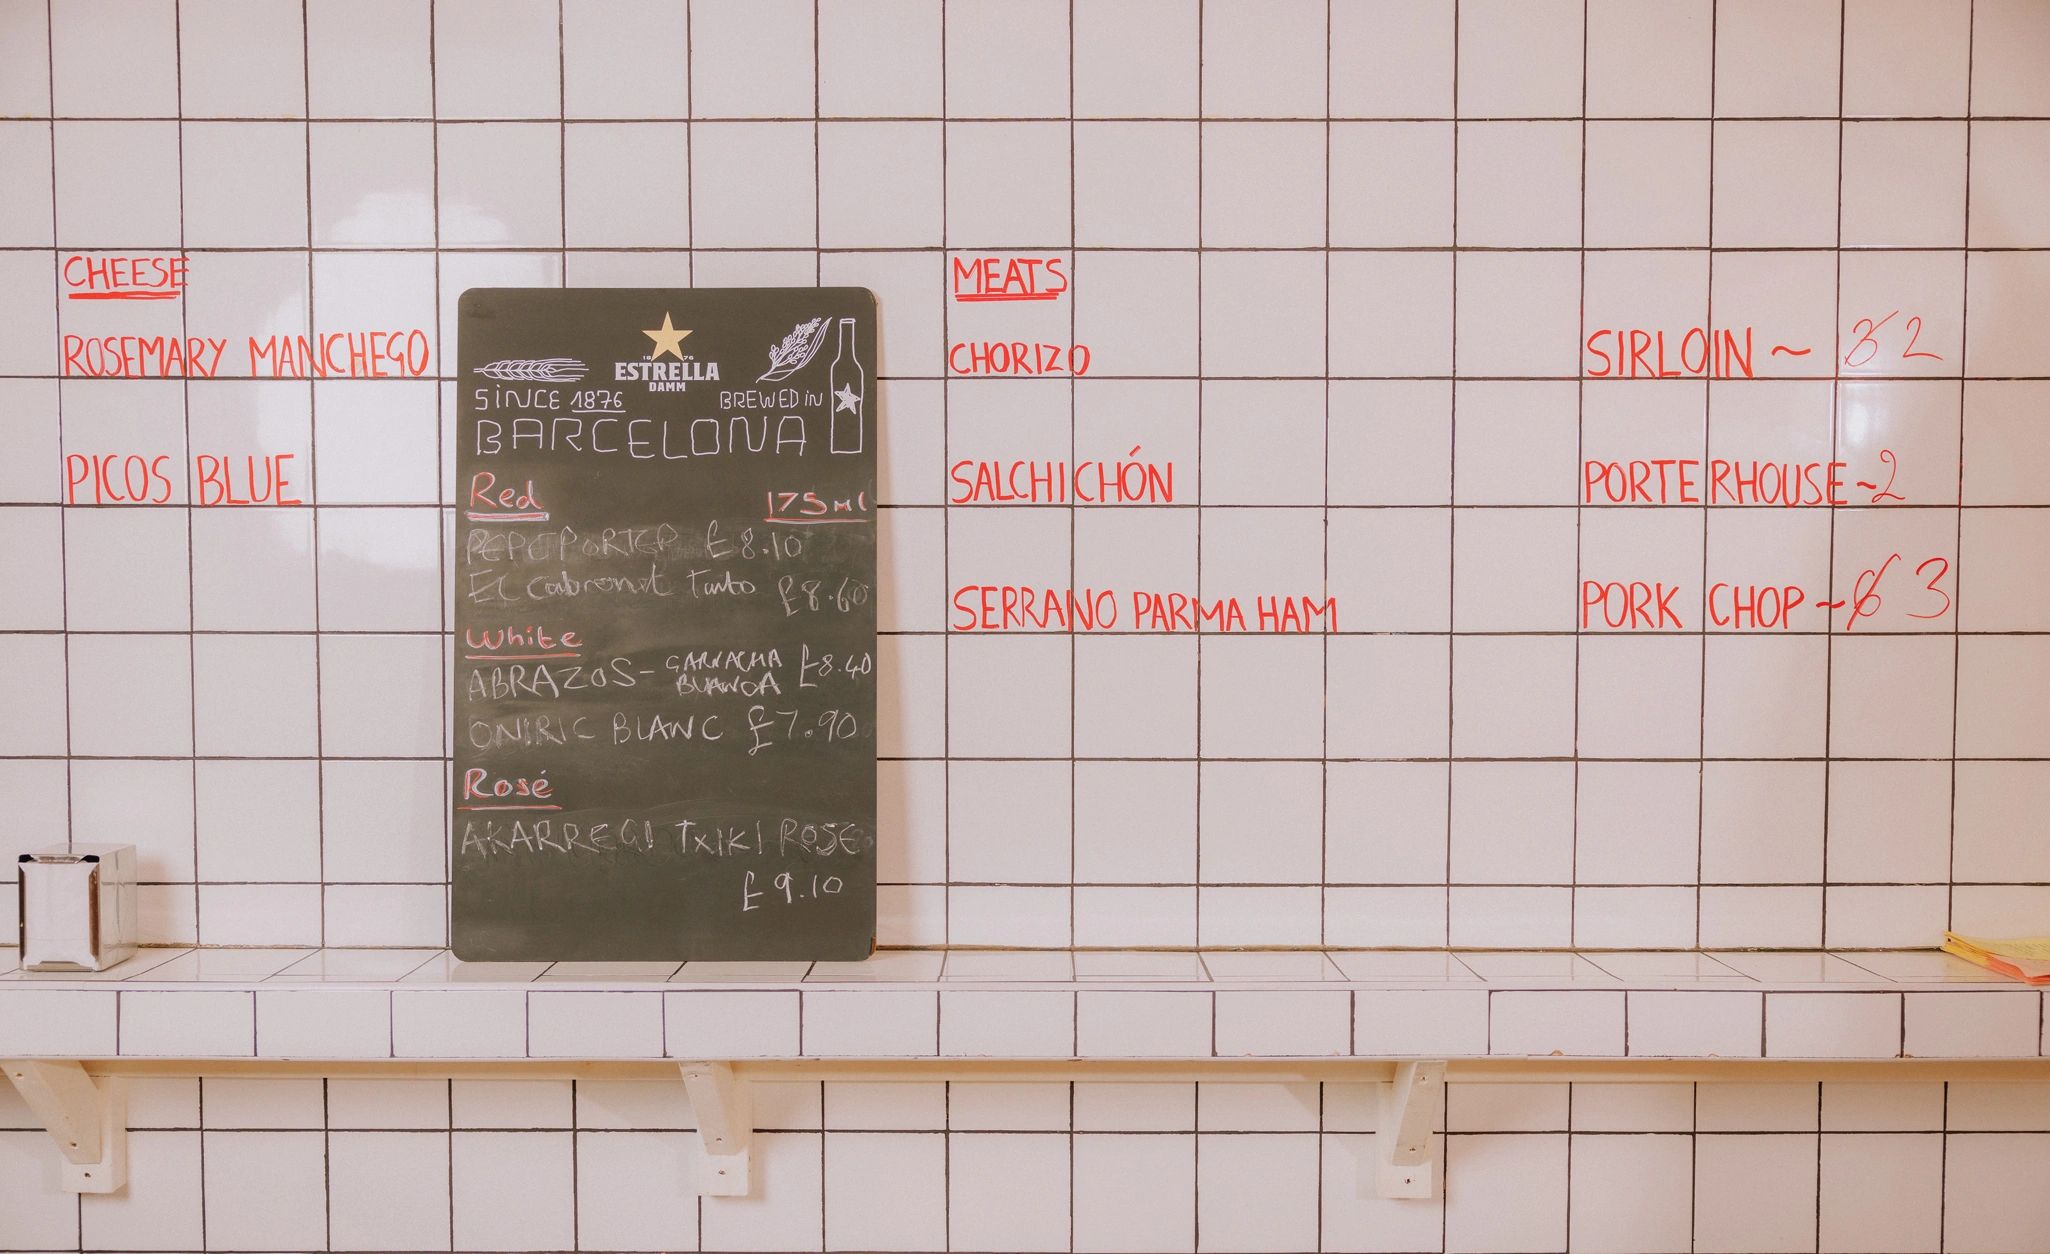 CHEESE
ROSEMARY MANCHEGO
PICOS BLUE
1876
ESTRELLA
DAMM
SINCE 1876
BREWED IN
BARCELONA
Red 175ml
£8.10
El Cabronet Tanto £8.60
White
ABRAZOS - GARNACHA BLANCA £8.40
ONIRIC BLANC £7.90
Rosé
AKARREGI TXIKI ROSE
£9.10
MEATS
CHORIZO
SALCHICHÓN
SERRANO PARMA HAM
SIRLOIN ~ 2
PORTERHOUSE ~ 2
PORK CHOP ~ 3